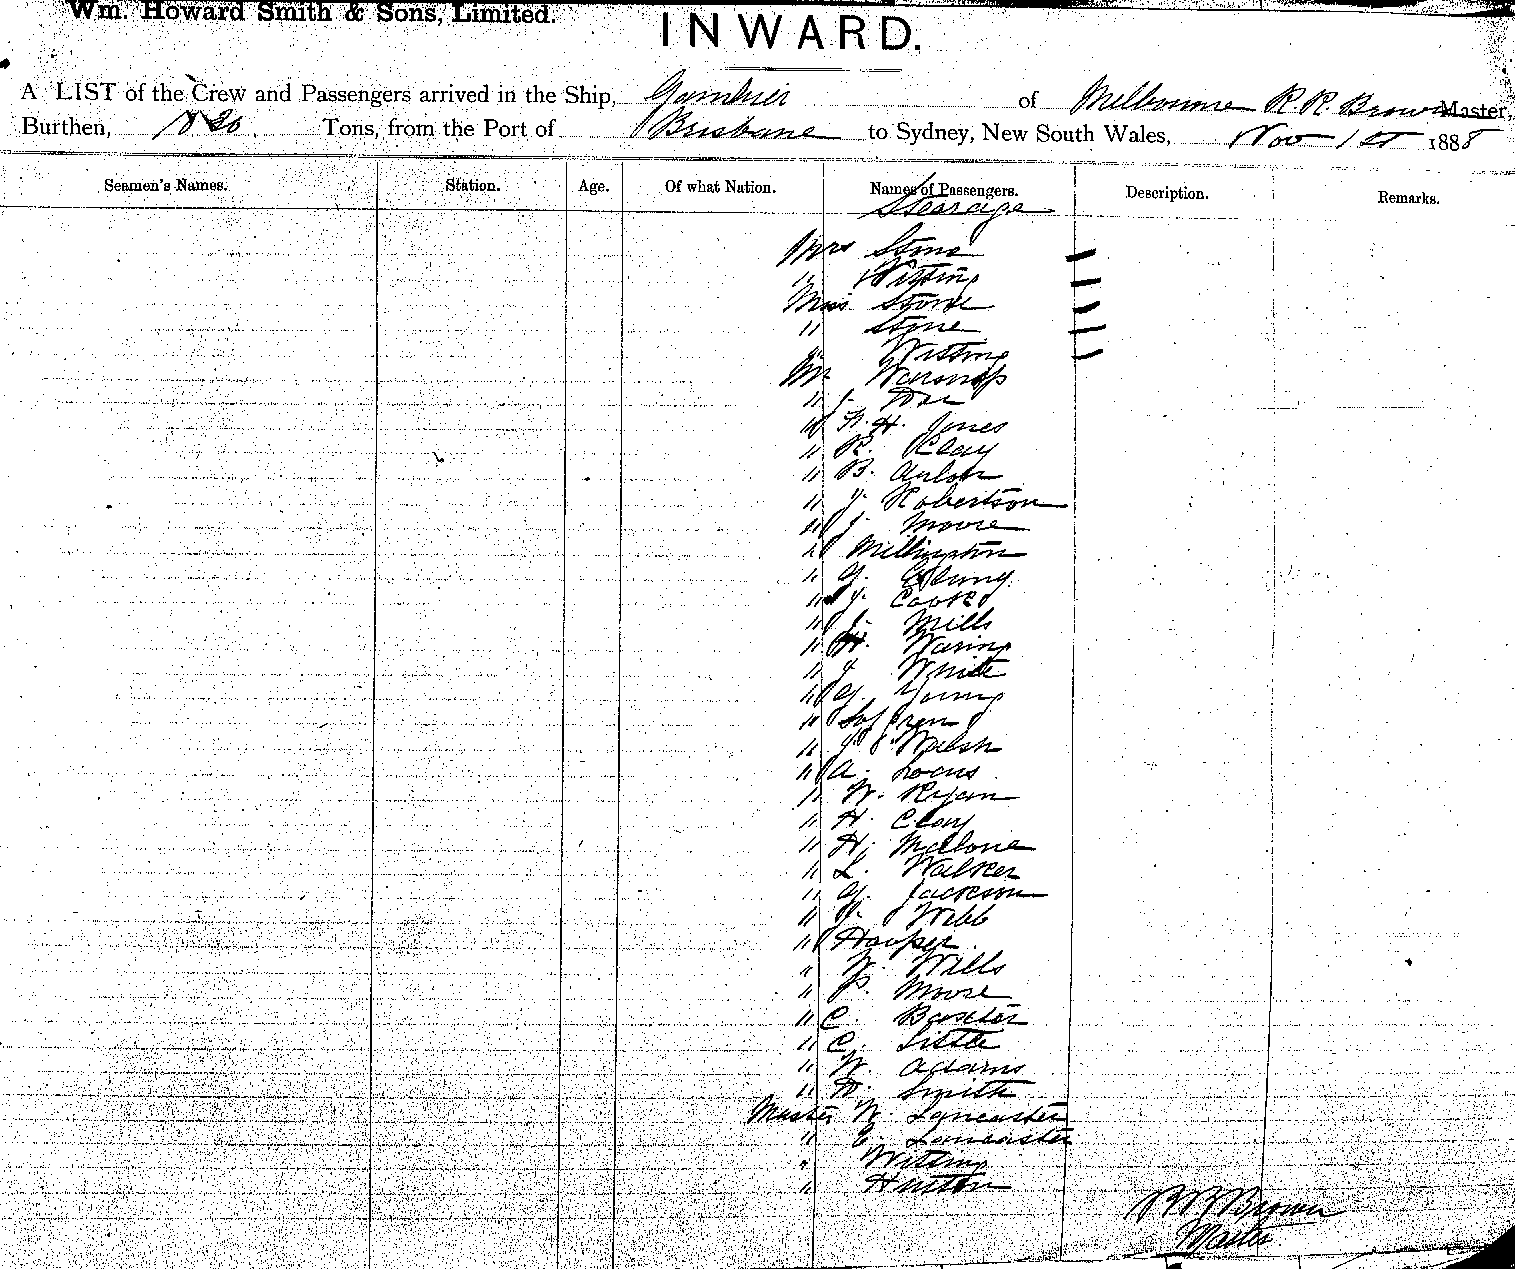 Wm. Howard Smith & Sons, Limited.
INWARD.
A LIST of the Crew and Passengers arrived in the Ship, Gambier of Melbourne R. R. Brown Master,
Burthen, Tons, from the Port of Brisbane to Sydney, New South Wales, Nov 1st 1888
Seamen's Names. Station. Age. Of what Nation. Names of Passengers. Description. Remarks.
Stearage
Mrs Stone
" Witting
Miss Stone
" Stone
" Witting
Mr
" J.
" H. Jones
" R. Clay
" B.
" J. Robertson
" J. Moore
" Millington
" G.
" J. Cook
" J. Mills
" H. Waring
" J. White
" G. Young
"
" J. Walsh
" A. Locus
" W. Ryan
" H. Clay
" H. Malone
" L. Walker
" G. Jackson
" J. Webb
" Hooper
" W. Wills
" P. Moore
" C. Baxter
" C. Little
" W. Adams
" H. Smith
Master W. Lancaster
" C. Lancaster
" Witting
" Hutton
R R Brown
Master